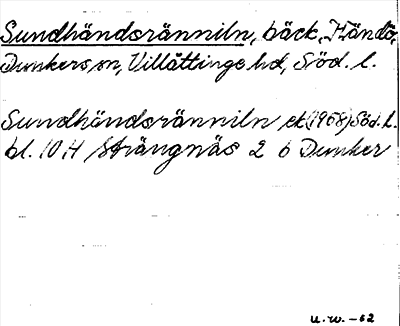 Sundhändsränniln, bäck, Händö,
Dunkers sn, Villåttinge hd, Söd. l.
Sundhändsränniln ek (1968) Söd. l.
bl. 10 H Strängnäs 2 b Dunker
U.W. -62